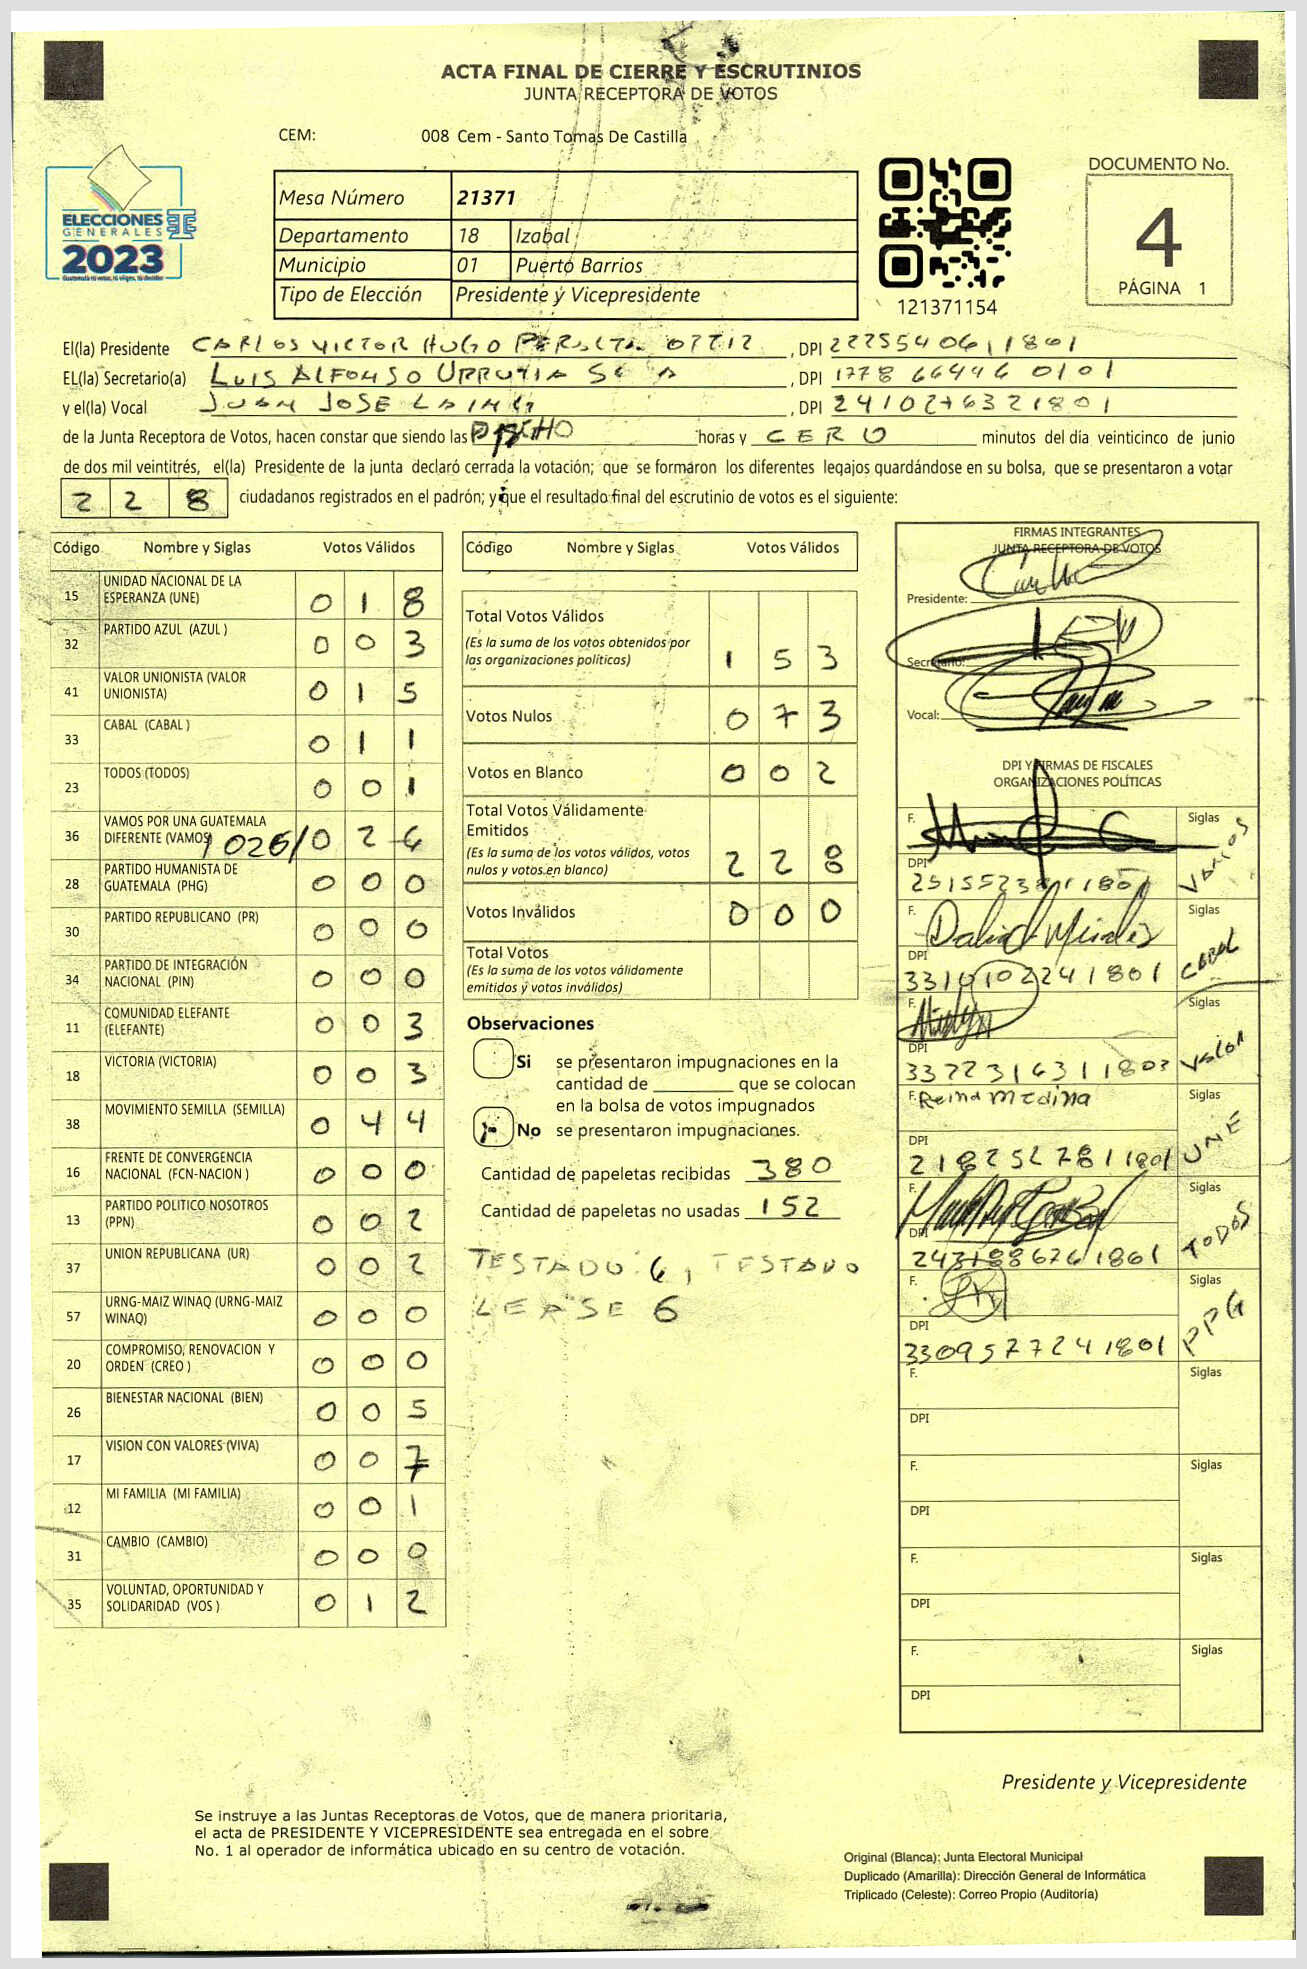 ACTA FINAL DE CIERRE Y ESCRUTINIOS
JUNTA RECEPTORA DE VOTOS
CEM: 008 Cem - Santo Tomas De Castilla
ELECCIONES
GENERALES
2023
Mesa Número 21371
Departamento 18 Izabal
Municipio 01 Puerto Barrios
Tipo de Elección Presidente y Vicepresidente
121371154
DOCUMENTO No.
4
PÁGINA 1
El(la) Presidente CARLOS VICTOR HUGO , DPI
EL(la) Secretario(a) LUIS ALFONSO URRUTIA , DPI 1778 66446 0101
y el(la) Vocal JUAN JOSE , DPI 2410276321801
de la Junta Receptora de Votos, hacen constar que siendo las horas y CERO minutos del día veinticinco de junio
de dos mil veintitrés, el(la) Presidente de la junta declaró cerrada la votación; que se formaron los diferentes legajos quardándose en su bolsa, que se presentaron a votar
2 2 8 ciudadanos registrados en el padrón; y que el resultado final del escrutinio de votos es el siguiente:
Código Nombre y Siglas Votos Válidos
15 UNIDAD NACIONAL DE LA ESPERANZA (UNE) 0 1 8
32 PARTIDO AZUL (AZUL ) 0 0 3
41 VALOR UNIONISTA (VALOR UNIONISTA) 0 1 5
33 CABAL (CABAL ) 0 1 1
23 TODOS (TODOS) 0 0 1
36 VAMOS POR UNA GUATEMALA DIFERENTE (VAMOS) 026 / 0 2 6
28 PARTIDO HUMANISTA DE GUATEMALA (PHG) 0 0 0
30 PARTIDO REPUBLICANO (PR) 0 0 0
34 PARTIDO DE INTEGRACIÓN NACIONAL (PIN) 0 0 0
11 COMUNIDAD ELEFANTE (ELEFANTE) 0 0 3
18 VICTORIA (VICTORIA) 0 0 3
38 MOVIMIENTO SEMILLA (SEMILLA) 0 4 4
16 FRENTE DE CONVERGENCIA NACIONAL (FCN-NACION ) 0 0 0
13 PARTIDO POLITICO NOSOTROS (PPN) 0 0 2
37 UNION REPUBLICANA (UR) 0 0 2
57 URNG-MAIZ WINAQ (URNG-MAIZ WINAQ) 0 0 0
20 COMPROMISO, RENOVACION Y ORDEN (CREO ) 0 0 0
26 BIENESTAR NACIONAL (BIEN) 0 0 5
17 VISION CON VALORES (VIVA) 0 0 7
12 MI FAMILIA (MI FAMILIA) 0 0 1
31 CAMBIO (CAMBIO) 0 0 0
35 VOLUNTAD, OPORTUNIDAD Y SOLIDARIDAD (VOS ) 0 1 2
Código Nombre y Siglas Votos Válidos
Total Votos Válidos 1 5 3
(Es la suma de los votos obtenidos por
las organizaciones políticas)
Votos Nulos 0 7 3
Votos en Blanco 0 0 2
Total Votos Válidamente
Emitidos
(Es la suma de los votos válidos, votos
nulos y votos en blanco) 2 2 8
Votos Inválidos 0 0 0
Total Votos
(Es la suma de los votos válidamente
emitidos y votos inválidos)
Observaciones
Si se presentaron impugnaciones en la
cantidad de ________ que se colocan
en la bolsa de votos impugnados
No se presentaron impugnaciones.
Cantidad de papeletas recibidas 380
Cantidad de papeletas no usadas 152
TESTADO 6, TESTADO
LEASE 6
FIRMAS INTEGRANTES
JUNTA RECEPTORA DE VOTOS
Presidente:
Secretario:
Vocal:
DPI Y FIRMAS DE FISCALES
ORGANIZACIONES POLÍTICAS
F. Siglas
DPI
F. Siglas CABAL
DPI 3310102241801
F. Siglas Valor
DPI
F. Reina Medina Siglas UNE
DPI 2187252781 1801
F. Siglas TODOS
DPI
F. Siglas PPG
DPI 3309577241801
F. Siglas
DPI
F. Siglas
DPI
F. Siglas
DPI
F. Siglas
DPI
Presidente y Vicepresidente
Se instruye a las Juntas Receptoras de Votos, que de manera prioritaria,
el acta de PRESIDENTE Y VICEPRESIDENTE sea entregada en el sobre
No. 1 al operador de informática ubicado en su centro de votación.
Original (Blanca): Junta Electoral Municipal
Duplicado (Amarilla): Dirección General de Informática
Triplicado (Celeste): Correo Propio (Auditoría)